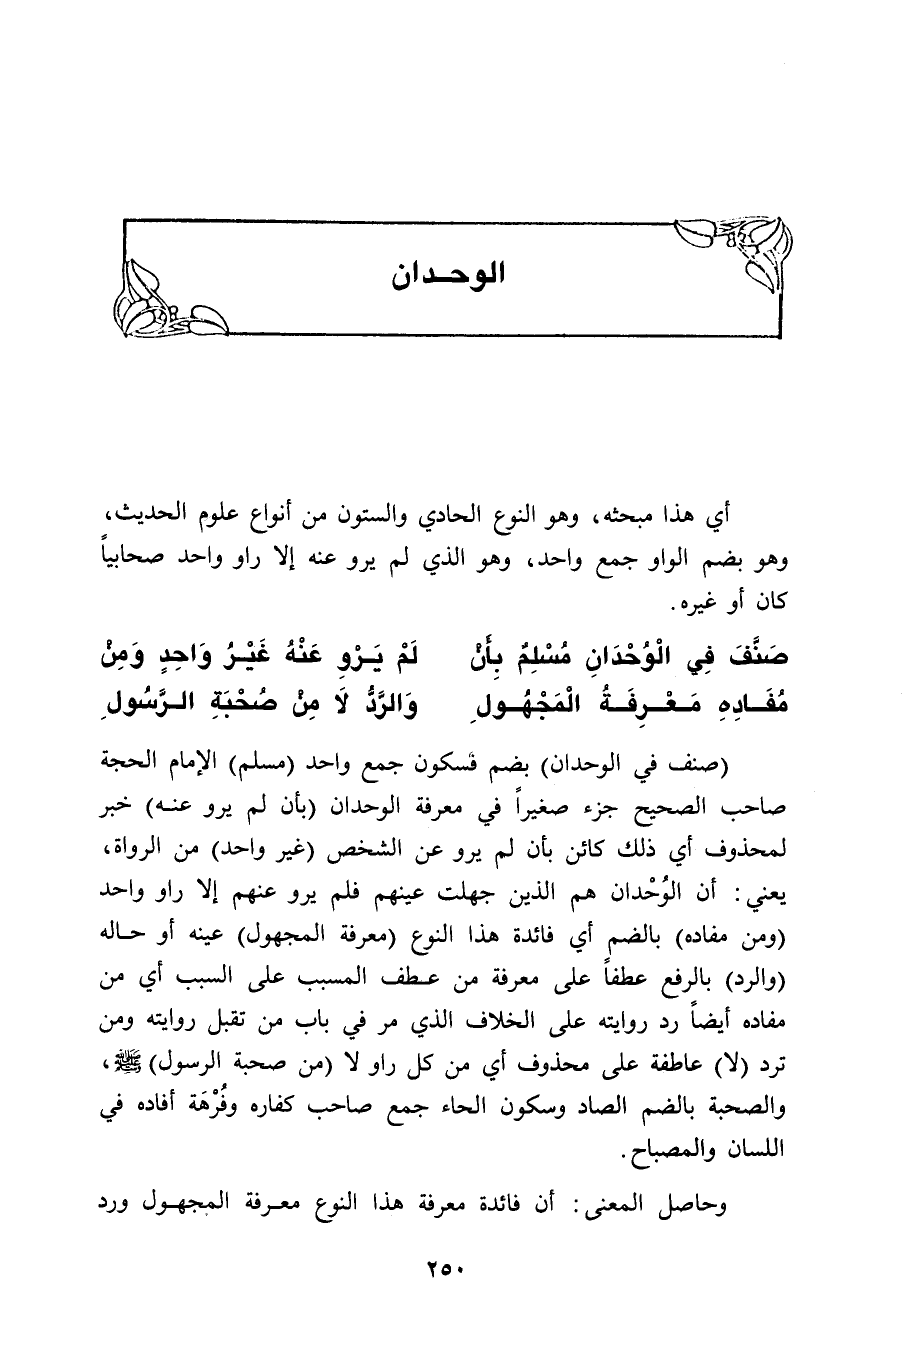 الوحدان
أي هذا مبحثه، وهو النوع الحادي والستون من أنواع علوم الحديث،
وهو بضم الواو جمع واحد، وهو الذي لم يرو عنه إلا راو واحد صحابياً
كان أو غيره.
صَنَّفَ فِي الْوُحْدَانِ مُسْلِمٌ بِأَنْ لَمْ يَرْوِ عَنْهُ غَيْرُ وَاحِدٍ وَمِنْ
مُفَادِهِ مَعْرِفَةُ الْمَجْهُولِ وَالرَّدُّ لَا مِنْ صُحْبَةِ الرَّسُولِ
(صنف في الوحدان) بضم فسكون جمع واحد (مسلم) الإمام الحجة
صاحب الصحيح جزء صغيراً في معرفة الوحدان (بأن لم يرو عنه) خبر
لمحذوف أي ذلك كائن بأن لم يرو عن الشخص (غير واحد) من الرواة،
يعني: أن الوُحْدان هم الذين جهلت عينهم فلم يرو عنهم إلا راو واحد
(ومن مفاده) بالضم أي فائدة هذا النوع (معرفة المجهول) عينه أو حاله
(والرد) بالرفع عطفاً على معرفة من عطف المسبب على السبب أي من
مفاده أيضاً رد روايته على الخلاف الذي مر في باب من تقبل روايته ومن
ترد (لا) عاطفة على محذوف أي من كل راو لا (من صحبة الرسول) ﷺ،
والصحبة بالضم الصاد وسكون الحاء جمع صاحب كفاره وفُرْهَة أفاده في
اللسان والمصباح.
وحاصل المعنى: أن فائدة معرفة هذا النوع معرفة المجهول ورد
٢٥٠